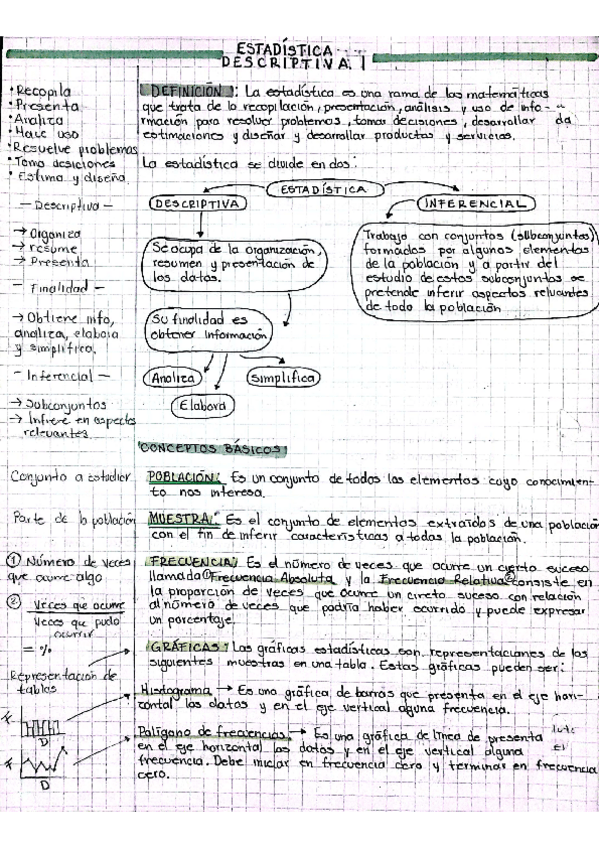 ESTADÍSTICA
DESCRIPTIVA 1
• Recopila
• Presenta
• Analiza
• Hace uso
• Resuelve problemas
• Toma desiciones
• Estima y diseña
— Descriptiva —
→ Organiza
→ resume
→ Presenta
— Finalidad —
→ Obtiene info,
analiza, elabora
y simplifica.
— Inferencial —
→ Subconjuntos
→ Infiere en aspectos
relevantes.
DEFINICIÓN: La estadística es una rama de las matemáticas
que trata de la recopilación, presentación, análisis y uso de info-
rmación para resolver problemas, tomar decisiones, desarrollar
estimaciones y diseñar y desarrollar productos y servicios.
La estadística se divide en dos:
ESTADÍSTICA
DESCRIPTIVA
INFERENCIAL
Se ocupa de la organización,
resumen y presentación de
los datos.
Su finalidad es
obtener información
Analiza
Simplifica
Elabora
Trabaja con conjuntos (subconjuntos)
formados por algunos elementos
de la población y a partir del
estudio de estos subconjuntos se
pretende inferir aspectos relevantes
de toda la población
CONCEPTOS BÁSICOS:
Conjunto a estudiar
POBLACIÓN: Es un conjunto de todos los elementos cuyo conocimien-
to nos interesa.
Parte de la población
MUESTRA: Es el conjunto de elementos extraídos de una población
con el fin de inferir características a todas la población.
① Número de veces
que ocurre algo
② Veces que ocurre
Veces que pudo
ocurrir
= %
FRECUENCIA: Es el número de veces que ocurre un cierto suceso
llamada ① Frecuencia Absoluta y la Frecuencia Relativa ② consiste en
la proporción de veces que ocurre un cireto suceso con relación
al número de veces que podría haber ocurrido y puede expresar
un porcentaje.
Representación de
tablas
GRÁFICAS: Las gráficas estadísticas son representaciones de las
siguientes muestras en una tabla. Estas gráficas pueden ser:
Histograma → Es una gráfica de barras que presenta en el eje hori-
zontal los datos y en el eje vertical alguna frecuencia.
D
Polígono de frecuencias → Es una gráfica de línea de presenta
en el eje horizontal los datos y en el eje vertical alguna
frecuencia. Debe iniciar en frecuencia cero y terminar en frecuencia
cero.
D